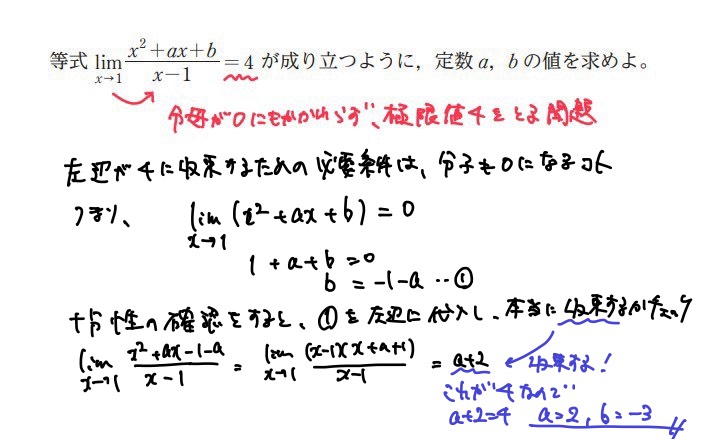 等式 lim_{x→1} (x²+ax+b)/(x−1) = 4 が成り立つように，定数 a，b の値を求めよ。
分母が0にもかかわらず、極限値4をとる問題
左辺が4に収束するための必要条件は、分子も0になること
つまり、 lim_{x→1} (x²+ax+b) = 0
1+a+b=0
b = −1−a …①
十分性の確認をすると、①を左辺に代入し、本当に収束するかチェック
lim_{x→1} (x²+ax−1−a)/(x−1) = lim_{x→1} (x−1)(x+a+1)/(x−1) = a+2 収束する！
これが4なので
a+2=4 a=2, b=−3